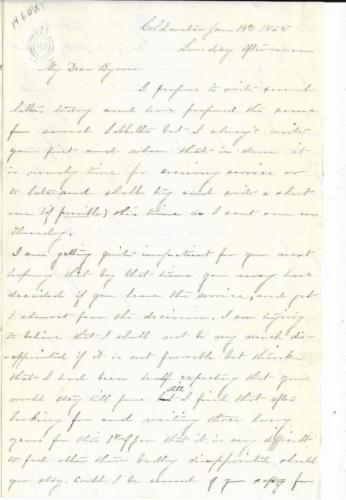 Coldwater Jan 1865
Sunday afternoon
My Dear Byron
I propose to write several
letters today and have proposed the same
for several Sabbaths but I always write
you first and when that is done it
is nearly time for evening service or
to late and shall try and write a short
one (if possible) this time as I sent one on
Thursday.
I am getting quite impatient for your next
hoping that by that time you may have
decided if you leave the service, and yet
I almost fear the decision. I am trying
to believe that I shall not be very much dis-
appointed if it is not favorable but think
that I had been half expecting that you
would stay till June but still I find that after
looking for and waiting these long
years for the that it is very difficult
to feel other than badly disappointed should
you stay. Could I be assured of your safety for